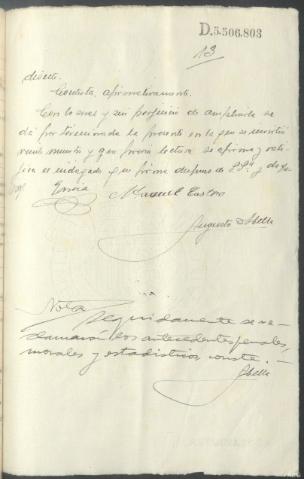 D.5.506.803
13
dicato.
Contesta: afirmativamente.
Con lo cual y sin perjuicio de ampliarla se
dá por terminada la presente en la que se invirtió
veinte minutos y que previa lectura se afirma y rati-
fica el indagado que firma despues de SSª y doy fé
Manuel Castro
Augusto D. Abella
Nota/ Seguidamente se re-
claman los antecedentes penales,
morales y estadisticos conste.-
Abella